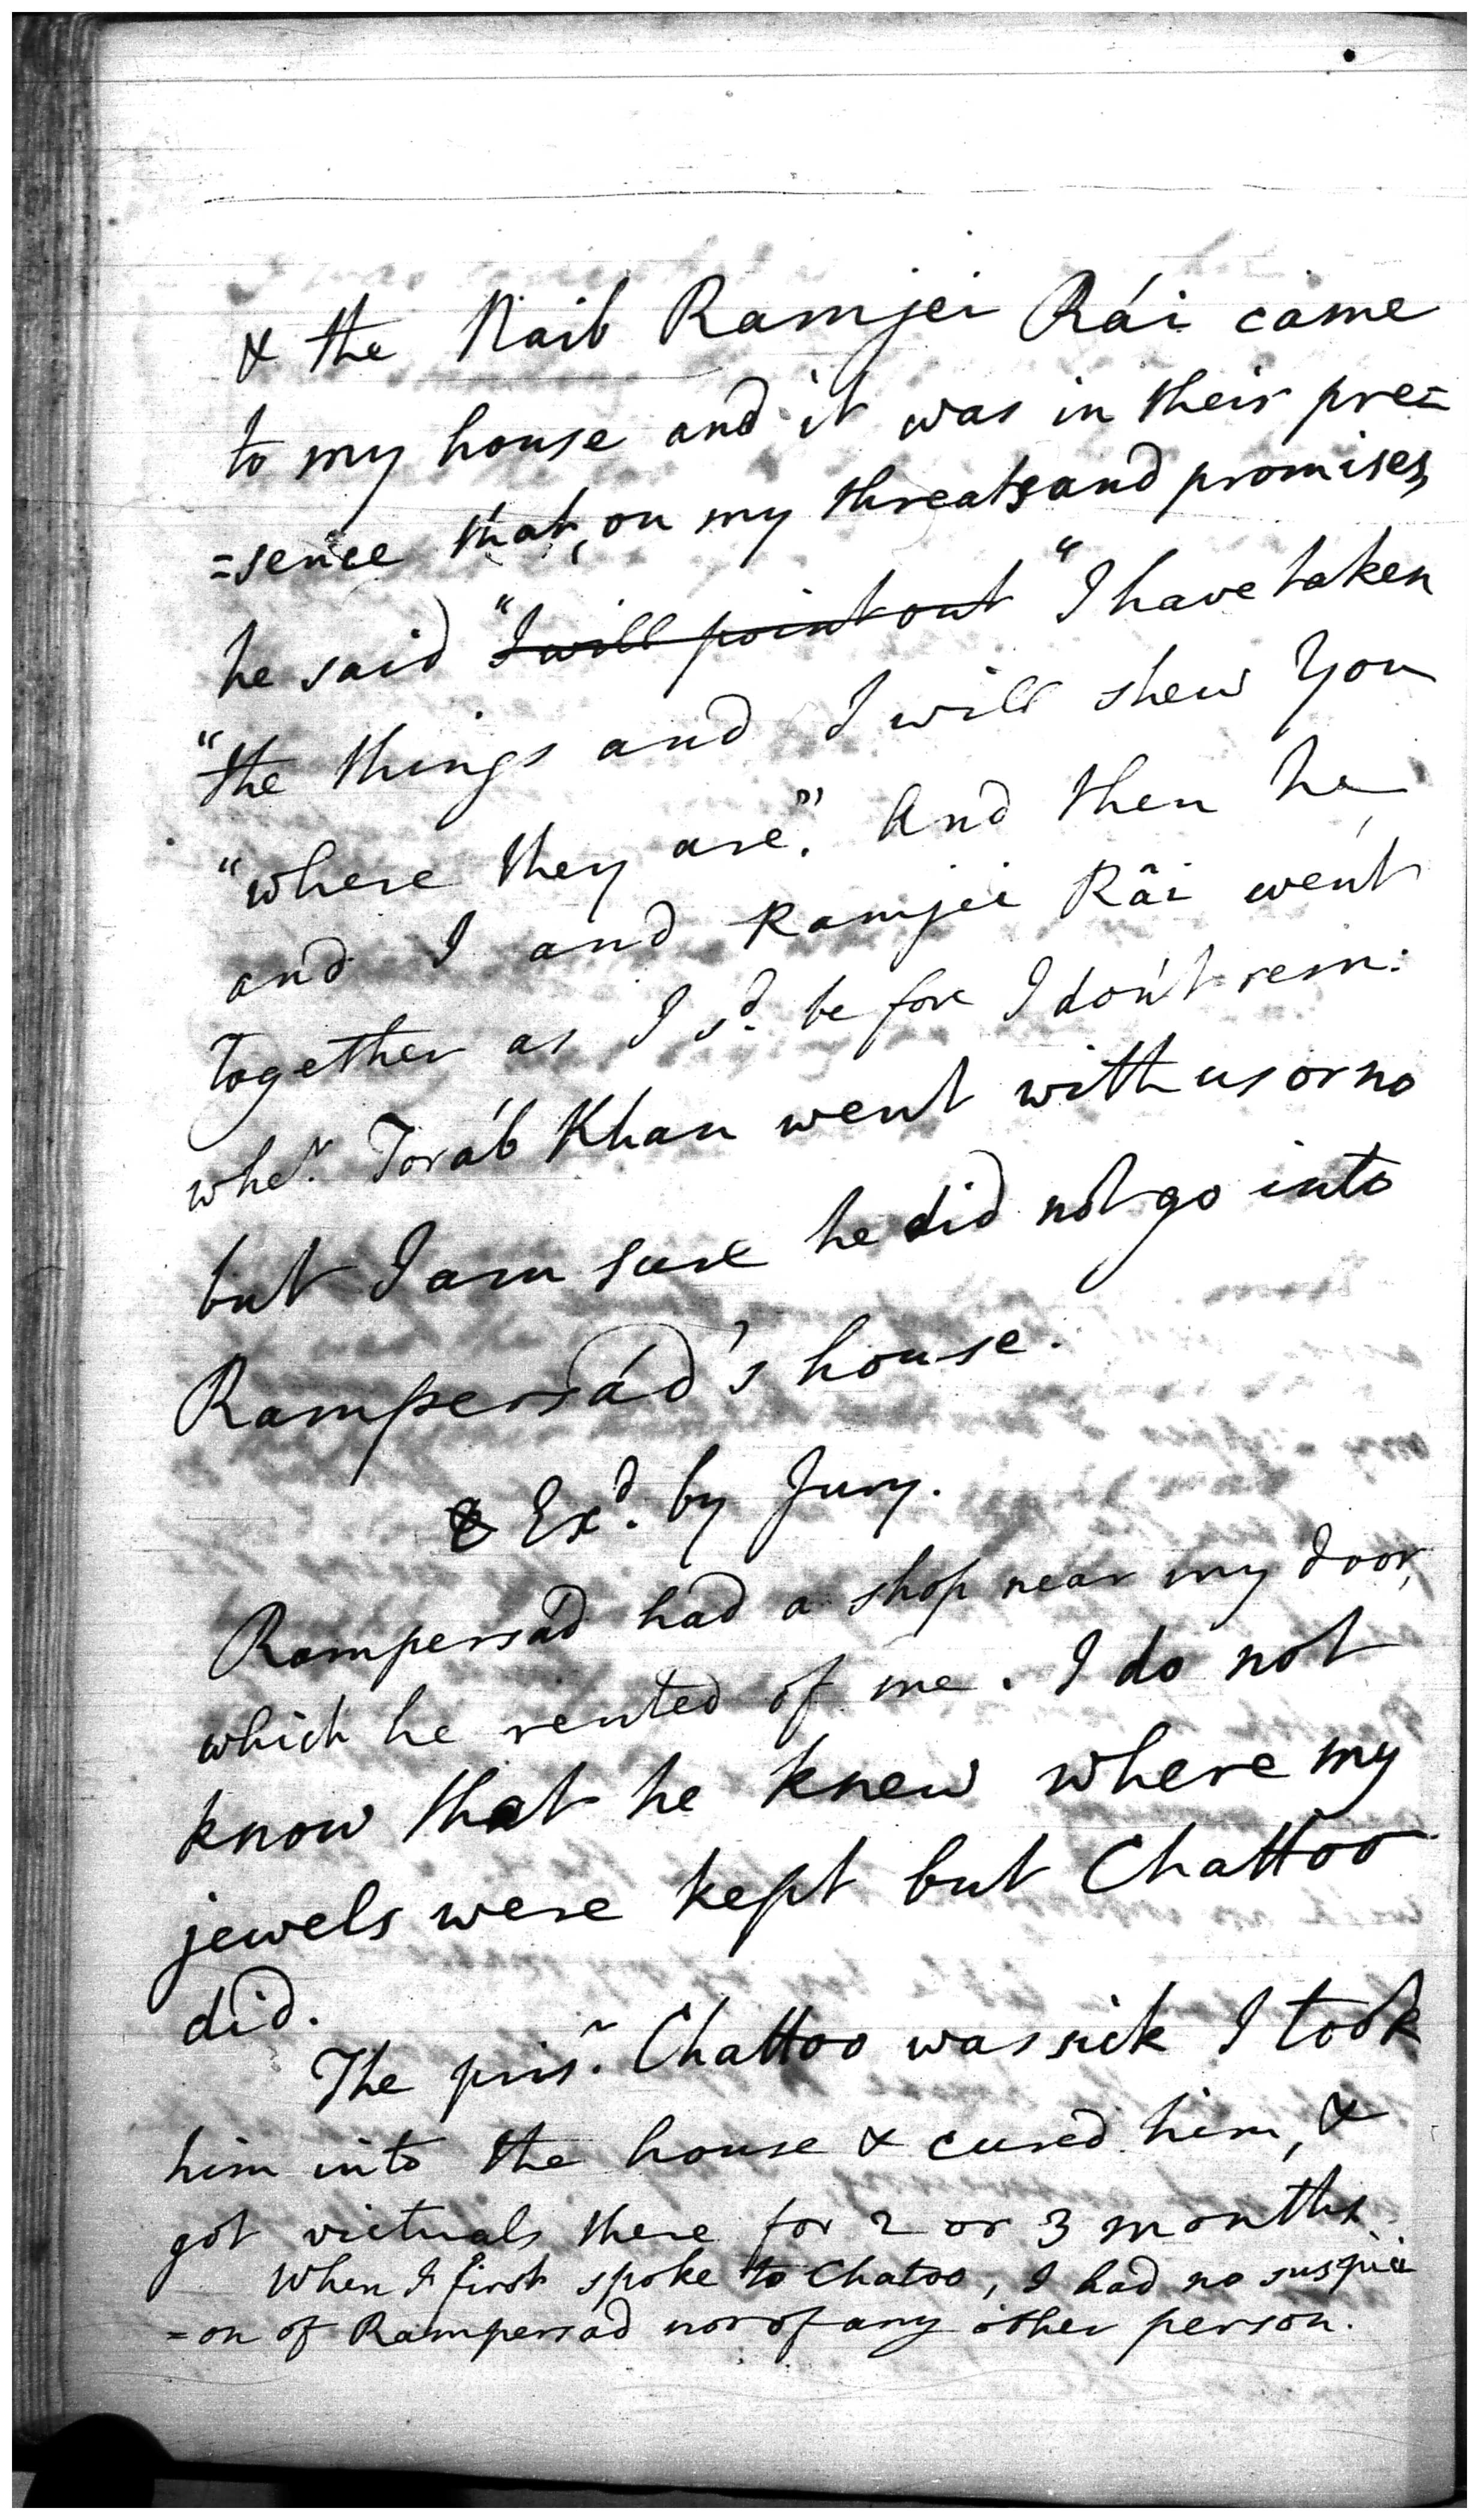 & the Naib Ramjei Rái came
to my house and it was in their pre=
=sence that, on my threats and promises,
he said "I will point out "I have taken
"the things and I will shew You
"where they are". And then he
and I and Ramjei Râi went
together as I sd. before I don't rem:
wher. Toráb Khan went with us or no
but I am sure he did not go into
Rampersád's house.
Exd. by Jury.
Rampersád had a shop near my door,
which he rented of me. I do not
know that he knew where my
jewels were kept but Chattoo
did.
The prisr. Chattoo was sick I took
him into the house & cured him, &
got victuals there for 2 or 3 months
When I first spoke to Chatoo, I had no suspici
=on of Rampersad nor of any other person.